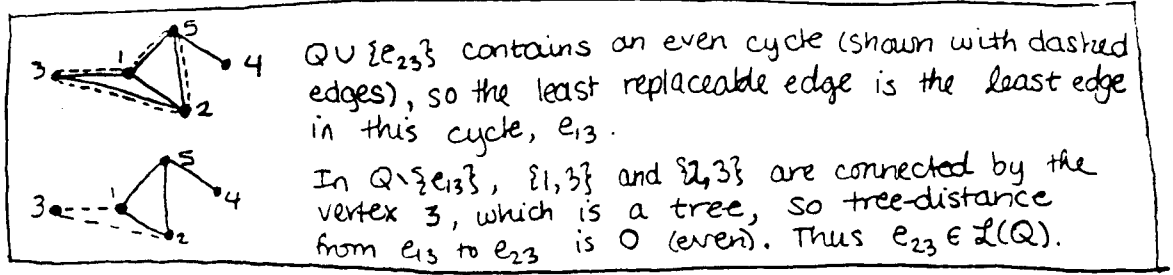 5
1
3
4
2
Q∪{e₂₃} contains an even cycle (shown with dashed
edges), so the least replaceable edge is the least edge
in this cycle, e₁₃.
5
1
3
4
2
In Q∖{e₁₃}, {1,3} and {2,3} are connected by the
vertex 3, which is a tree, so tree-distance
from e₁₃ to e₂₃ is 0 (even). Thus e₂₃ ∈ ℒ(Q).